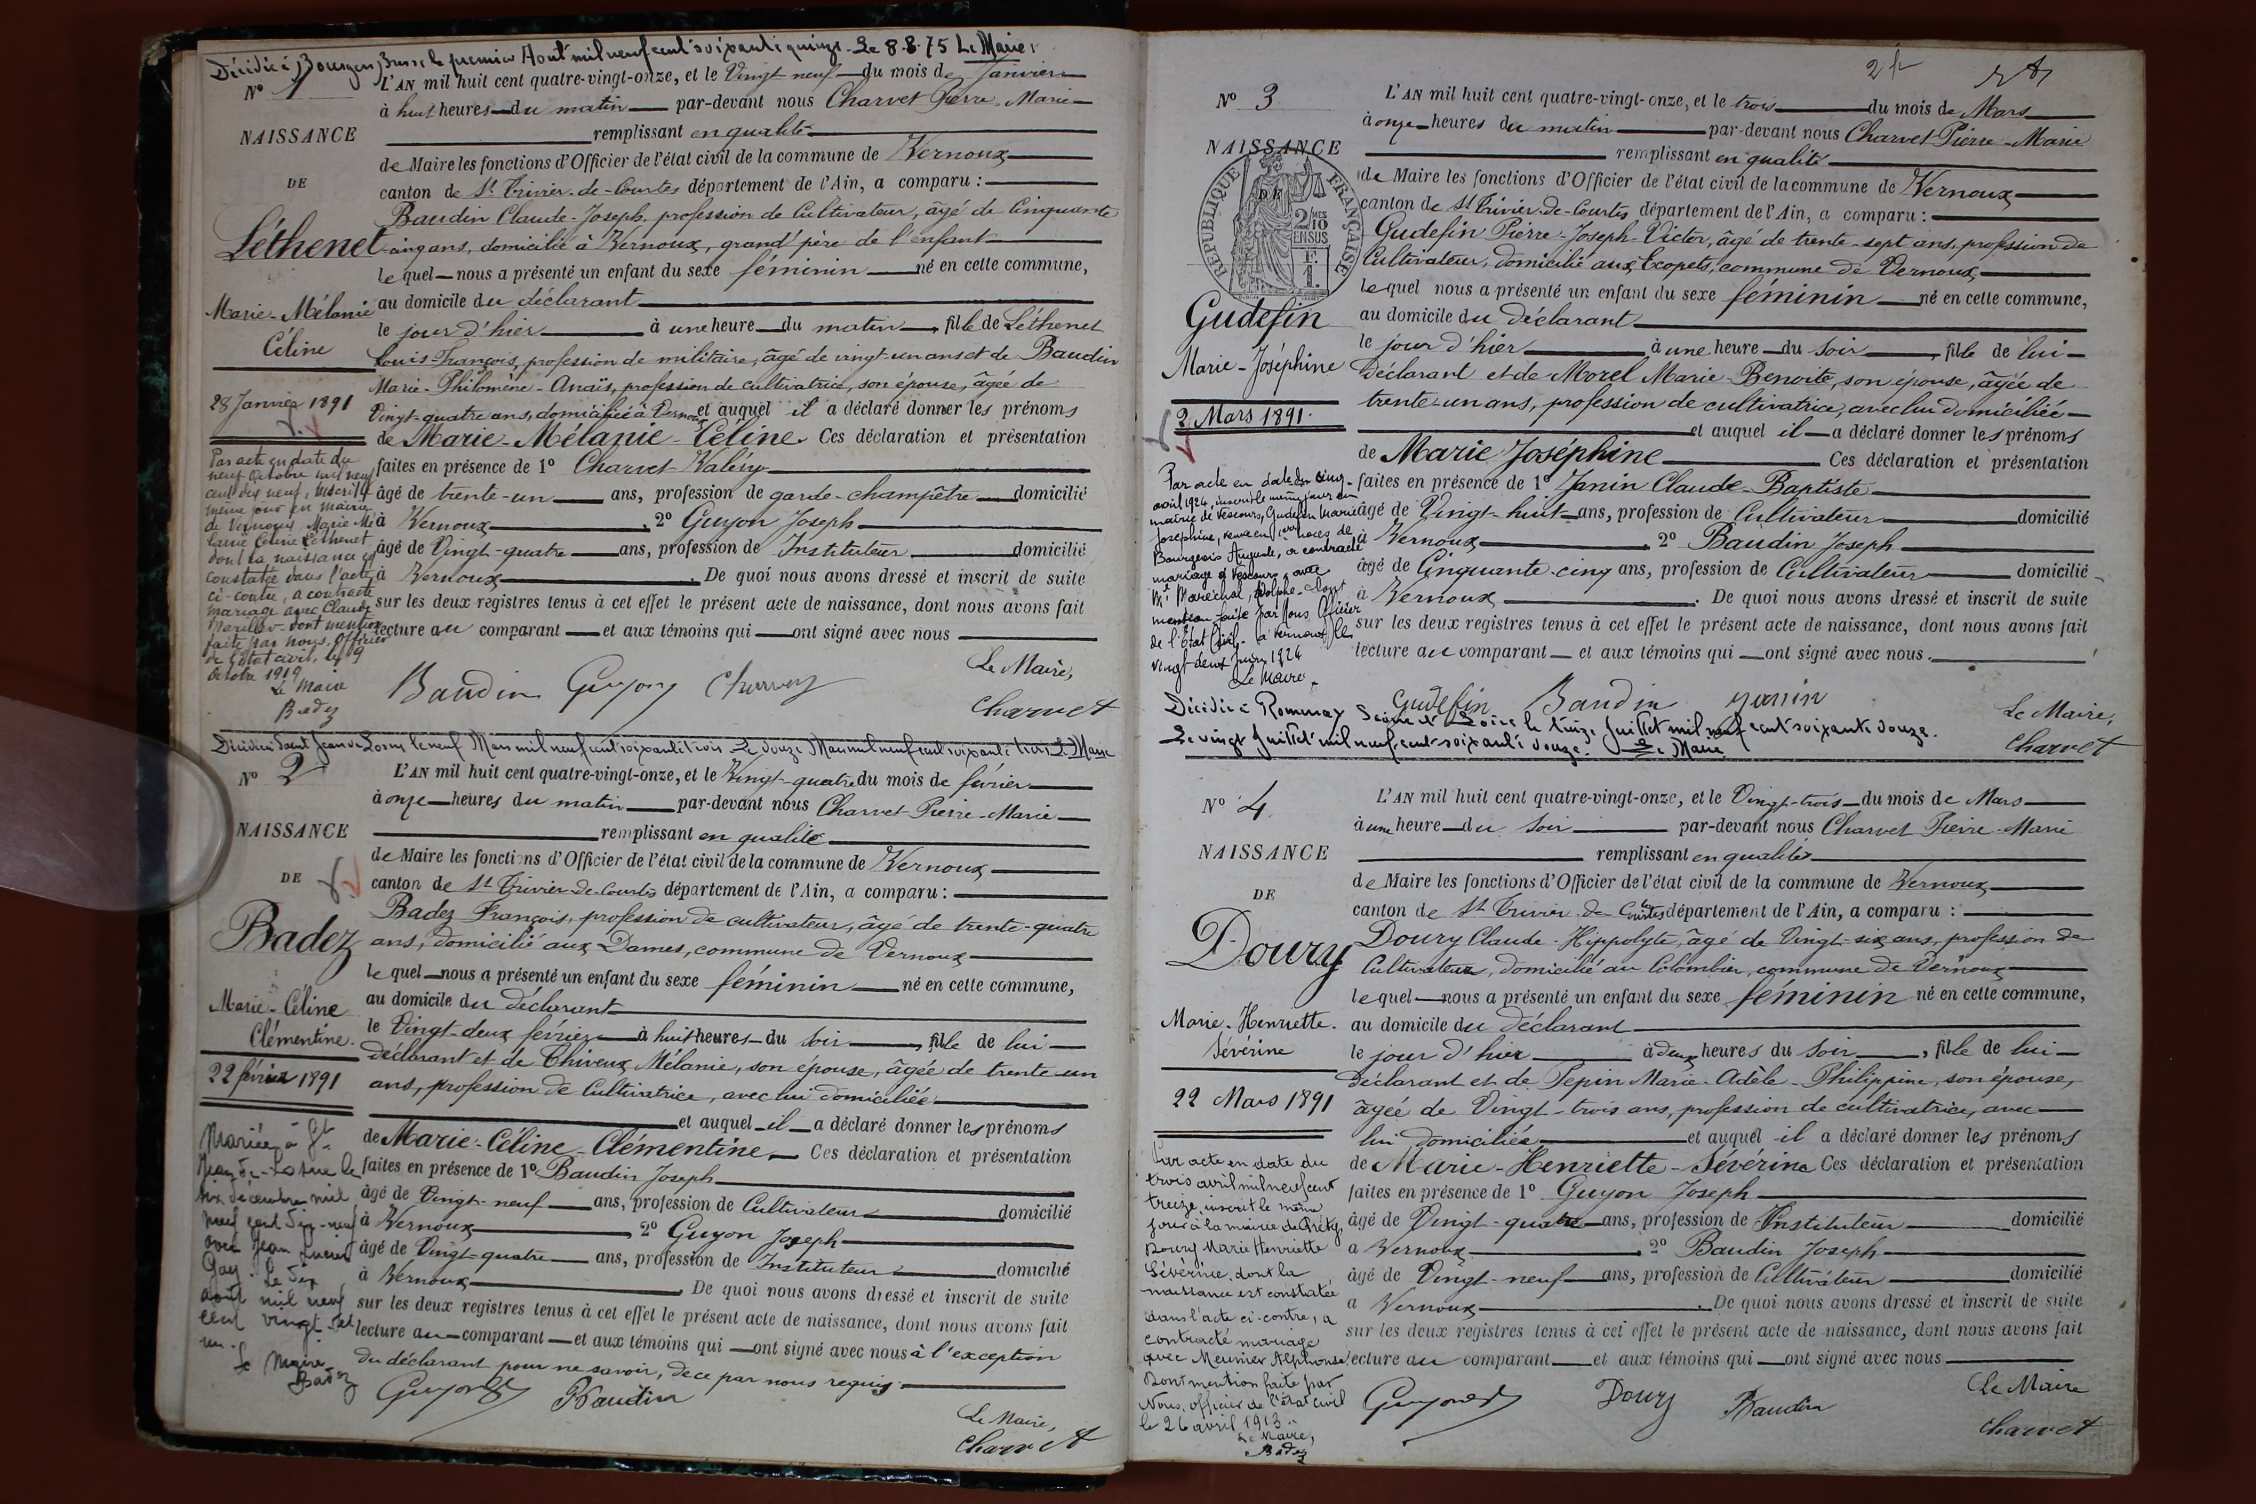 Décédée à Bourg en Bresse le premier Août mil neuf cent soixante quinze. Le 8.8.75 Le Maire
N° 1
NAISSANCE
DE
Léthenet
Marie-Mélanie
Céline
28 Janvier 1891
Par acte en date du
neuf Octobre mil neuf
cent dix neuf, inscrit le
même jour en mairie
de Vernoux, Marie Mé
lanie Céline Léthenet
dont la naissance est
constatée dans l'acte
ci-contre, a contracté
mariage avec Claude
dont mention
faite par nous, Officier
de l'état civil, le 9
Octobre 1919
Le Maire
Badez
L'AN mil huit cent quatre-vingt-onze, et le Vingt neuf du mois de Janvier
à huit heures du matin par-devant nous Charvet Pierre-Marie
remplissant en qualité
de Maire les fonctions d'Officier de l'état civil de la commune de Vernoux
canton de St Trivier-de-Courtes département de l'Ain, a comparu :
Baudin Claude-Joseph, profession de Cultivateur, âgé de Cinquante
cinq ans, domicilié à Vernoux, grand'père de l'enfant
lequel nous a présenté un enfant du sexe féminin né en cette commune,
au domicile du déclarant
le jour d'hier à une heure du matin, fille de Léthenet
Louis-François, profession de militaire, âgé de vingt-un ans et de Baudin
Marie-Philomène-Anaïs, profession de cultivatrice, son épouse, âgée de
Vingt-quatre ans, domiciliée à Vernoux et auquel il a déclaré donner les prénoms
de Marie-Mélanie-Céline. Ces déclaration et présentation
faites en présence de 1° Charvet Valéry
âgé de trente-un ans, profession de garde-champêtre domicilié
à Vernoux, 2° Guyon Joseph
âgé de Vingt-quatre ans, profession de Instituteur domicilié
à Vernoux. De quoi nous avons dressé et inscrit de suite
sur les deux registres tenus à cet effet le présent acte de naissance, dont nous avons fait
lecture au comparant et aux témoins qui ont signé avec nous
Le Maire,
Baudin Guyon Charvet
Charvet
Décédée à Saint Jean de Losne le neuf Mars mil neuf cent soixante trois Le douze Mars mil neuf cent soixante trois Le Maire
N° 2
NAISSANCE
DE
Badez
Marie-Céline
Clémentine.
22 février 1891
Mariée à St
Jean de-Losne le
six décembre mil
neuf cent dix-neuf
avec Jean Lucien
Gay. Le dix
août mil neuf
cent vingt et
un.
Le Maire
Badez
L'AN mil huit cent quatre-vingt-onze, et le Vingt-quatre du mois de février
à onze heures du matin par-devant nous Charvet Pierre-Marie
remplissant en qualité
de Maire les fonctions d'Officier de l'état civil de la commune de Vernoux
canton de St Trivier-de-Courtes département de l'Ain, a comparu :
Badez François, profession de cultivateur, âgé de trente-quatre
ans, domicilié aux Dames, commune de Vernoux
lequel nous a présenté un enfant du sexe féminin né en cette commune,
au domicile du déclarant
le Vingt-deux février à huit heures du soir, fille de lui
déclarant et de Chireux Mélanie, son épouse, âgée de trente-un
ans, profession de Cultivatrice, avec lui domiciliée
et auquel il a déclaré donner les prénoms
de Marie-Céline-Clémentine. Ces déclaration et présentation
faites en présence de 1° Baudin Joseph
âgé de Vingt-neuf ans, profession de Cultivateur domicilié
à Vernoux 2° Guyon Joseph
âgé de Vingt-quatre ans, profession de Instituteur domicilié
à Vernoux. De quoi nous avons dressé et inscrit de suite
sur les deux registres tenus à cet effet le présent acte de naissance, dont nous avons fait
lecture au comparant et aux témoins qui ont signé avec nous à l'exception
du déclarant pour ne savoir, de ce par nous requis.
Guyon Baudin
Le Maire,
Charvet
2
N° 3
NAISSANCE
DE
RÉPUBLIQUE FRANÇAISE
2/10 EN SUS
Gudefin
Marie-Joséphine
2 Mars 1891.
Par acte en date du cinq
avril 1924, inscrit le même jour en
mairie de Vescours, Gudefin Marie
Joséphine, veuve en 1ères noces de
Bourgeois Auguste, a contracté
mariage à Vescours, avec
Mr Maréchal, Adolphe. dont
mention faite par Nous Officier
de l'Etat Civil. à Vernoux le
vingt deux Juin 1924
Le Maire
L'AN mil huit cent quatre-vingt-onze, et le trois du mois de Mars
à onze heures du matin par-devant nous Charvet Pierre-Marie
remplissant en qualité
de Maire les fonctions d'Officier de l'état civil de la commune de Vernoux
canton de St Trivier-de-Courtes département de l'Ain, a comparu :
Gudefin Pierre-Joseph-Victor, âgé de trente-sept ans, profession de
Cultivateur, domicilié aux Ecopets, commune de Vernoux
lequel nous a présenté un enfant du sexe féminin né en cette commune,
au domicile du déclarant
le jour d'hier à une heure du soir, fille de lui
déclarant et de Morel Marie-Benoite, son épouse, âgée de
trente-un ans, profession de cultivatrice, avec lui domiciliée
et auquel il a déclaré donner les prénoms
de Marie Joséphine Ces déclaration et présentation
faites en présence de 1° Janin Claude-Baptiste
âgé de Vingt-huit ans, profession de Cultivateur domicilié
à Vernoux 2° Baudin Joseph
âgé de Cinquante-cinq ans, profession de Cultivateur domicilié
à Vernoux. De quoi nous avons dressé et inscrit de suite
sur les deux registres tenus à cet effet le présent acte de naissance, dont nous avons fait
lecture au comparant et aux témoins qui ont signé avec nous.
Gudefin Baudin Janin
Le Maire,
Charvet
Décédée à Romenay Saône et Loire le treize Juillet mil neuf cent soixante douze.
Le vingt Juillet mil neuf cent soixante douze. Le Maire
N° 4
NAISSANCE
DE
Doury
Marie-Henriette.
Sévérine
22 Mars 1891
Par acte en date du
trois avril mil neuf cent
treize, inscrit le même
jour à la mairie de Préty,
Doury Marie Henriette
Sévérine, dont la
naissance est constatée
dans l'acte ci-contre, a
contracté mariage
avec Meunier Alphonse
Dont mention faite par
Nous, officier de l'état civil
le 26 avril 1913.
Le Maire,
Badez
L'AN mil huit cent quatre-vingt-onze, et le Vingt-trois du mois de Mars
à une heure du soir par-devant nous Charvet Pierre-Marie
remplissant en qualité
de Maire les fonctions d'Officier de l'état civil de la commune de Vernoux
canton de St Trivier-de-Courtes département de l'Ain, a comparu :
Doury Claude-Hippolyte, âgé de Vingt-six ans, profession de
Cultivateur, domicilié au Colombier, commune de Vernoux
lequel nous a présenté un enfant du sexe féminin né en cette commune,
au domicile du déclarant
le jour d'hier à deux heures du soir, fille de lui
déclarant et de Pepin Marie-Adèle-Philippine, son épouse,
âgée de Vingt-trois ans, profession de cultivatrice, avec
lui domiciliée et auquel il a déclaré donner les prénoms
de Marie-Henriette-Sévérine Ces déclaration et présentation
faites en présence de 1° Guyon Joseph
âgé de Vingt-quatre ans, profession de Instituteur domicilié
à Vernoux 2° Baudin Joseph
âgé de Vingt-neuf ans, profession de Cultivateur domicilié
à Vernoux. De quoi nous avons dressé et inscrit de suite
sur les deux registres tenus à cet effet le présent acte de naissance, dont nous avons fait
lecture au comparant et aux témoins qui ont signé avec nous
Guyon Doury Baudin
Le Maire
Charvet